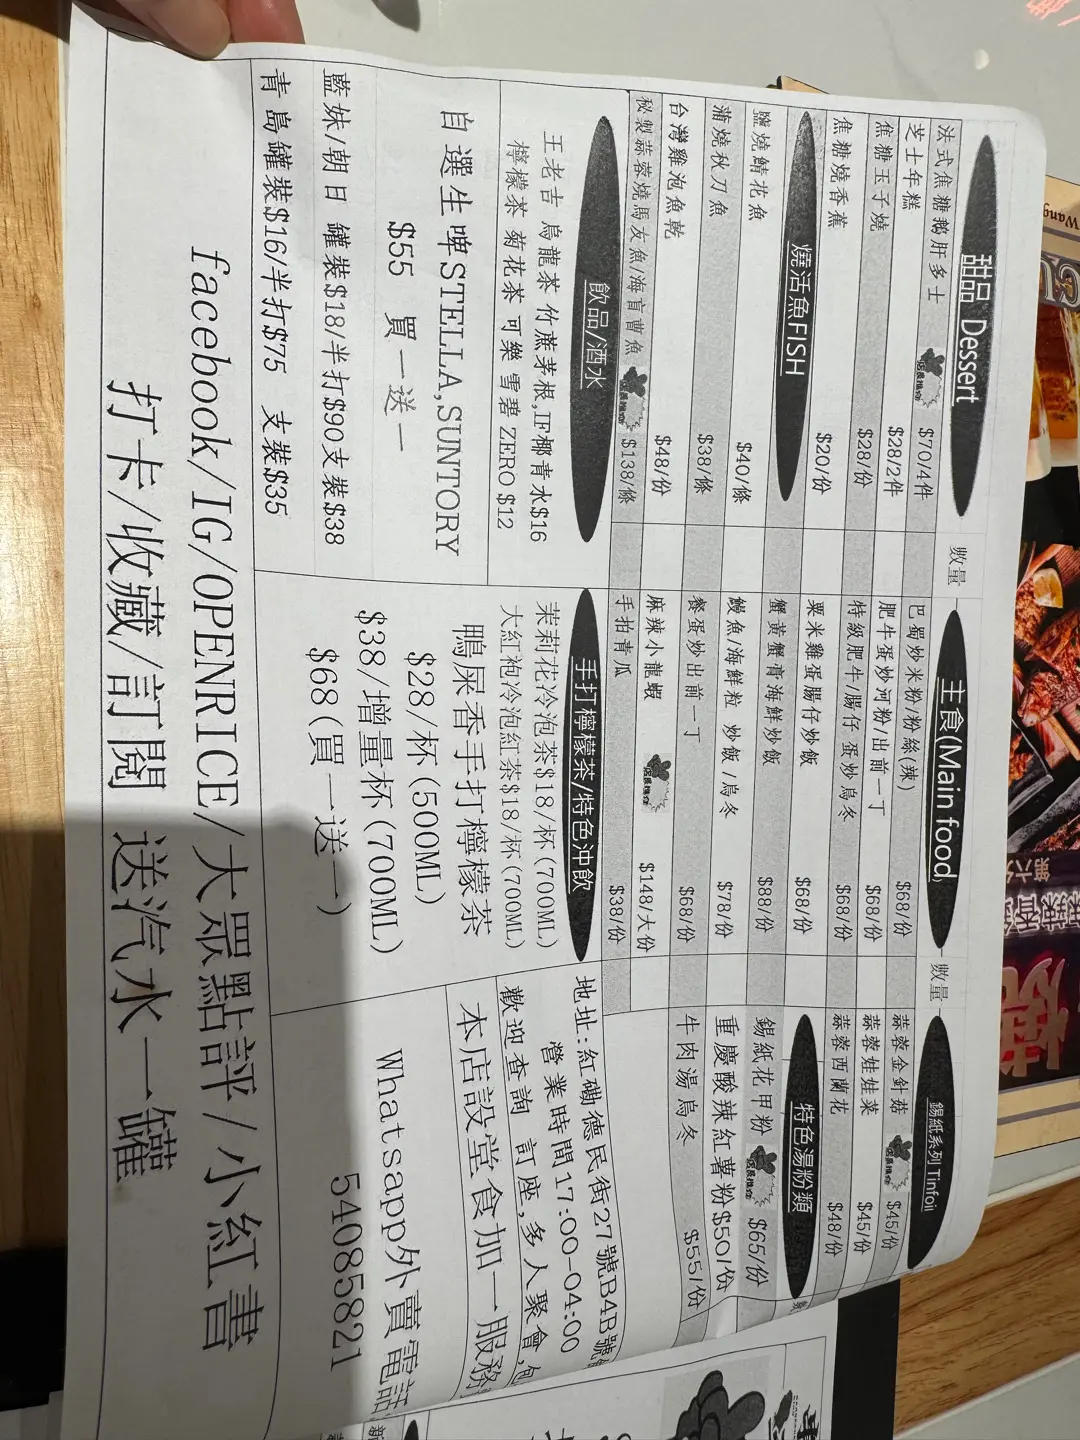 甜品 Dessert
法式焦糖鵝肝多士 店長推介 $70/4件
芝士年糕 $28/2件
焦糖玉子燒 $28/份
焦糖燒香蕉 $20/份
燒活魚FISH
鹽燒鯖花魚 $40/條
蒲燒秋刀魚 $38/條
台灣雞泡魚乾 $48/份
秘製蒜蓉燒馬友魚/海盲曹魚 店長推介 $138/條
飲品/酒水
王老吉 烏龍茶 竹蔗茅根,IF椰青水$16
檸檬茶 菊花茶 可樂 雪碧 ZERO $12
自選生啤STELLA,SUNTORY
$55 買一送一
藍妹/朝日 罐裝$18/半打$90支裝$38
青島罐裝$16/半打$75 支裝$35
數量
主食(Main food)
巴蜀炒米粉/粉絲(辣) $68/份
肥牛蛋炒河粉/出前一丁 $68/份
特級肥牛/腸仔 蛋炒烏冬 $68/份
粟米雞蛋腸仔炒飯 $68/份
蟹黃蟹膏海鮮炒飯 $88/份
鰻魚/海鮮粒 炒飯/烏冬 $78/份
餐蛋炒出前一丁 $68/份
麻辣小龍蝦 店長推介 $148/大份
手拍青瓜 $38/份
手打檸檬茶/特色沖飲
茉莉花冷泡茶$18/杯(700ML)
大紅袍冷泡紅茶$18/杯(700ML)
鴨屎香手打檸檬茶
$28/杯(500ML)
$38/增量杯(700ML)
$68(買一送一)
數量
錫紙系列 Tinfoil
蒜蓉金針菇 店長推介 $45/份
蒜蓉娃娃菜 $45/份
蒜蓉西蘭花 $48/份
特色湯粉類
錫紙花甲粉 店長推介 $65/份
重慶酸辣紅薯粉$50/份
牛肉湯烏冬 $55/份
地址:紅磡德民街27號B4B號
營業時間17:00-04:00
歡迎查詢 訂座,多人聚會,包
本店設堂食加一服務
Whatsapp外賣電話
54085821
facebook/IG/OPENRICE/大眾點評/小紅書
打卡/收藏/訂閱 送汽水一罐
Wang
第六